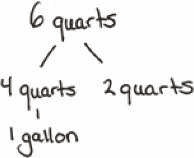 6 quarts
4 quarts 2 quarts
1 gallon